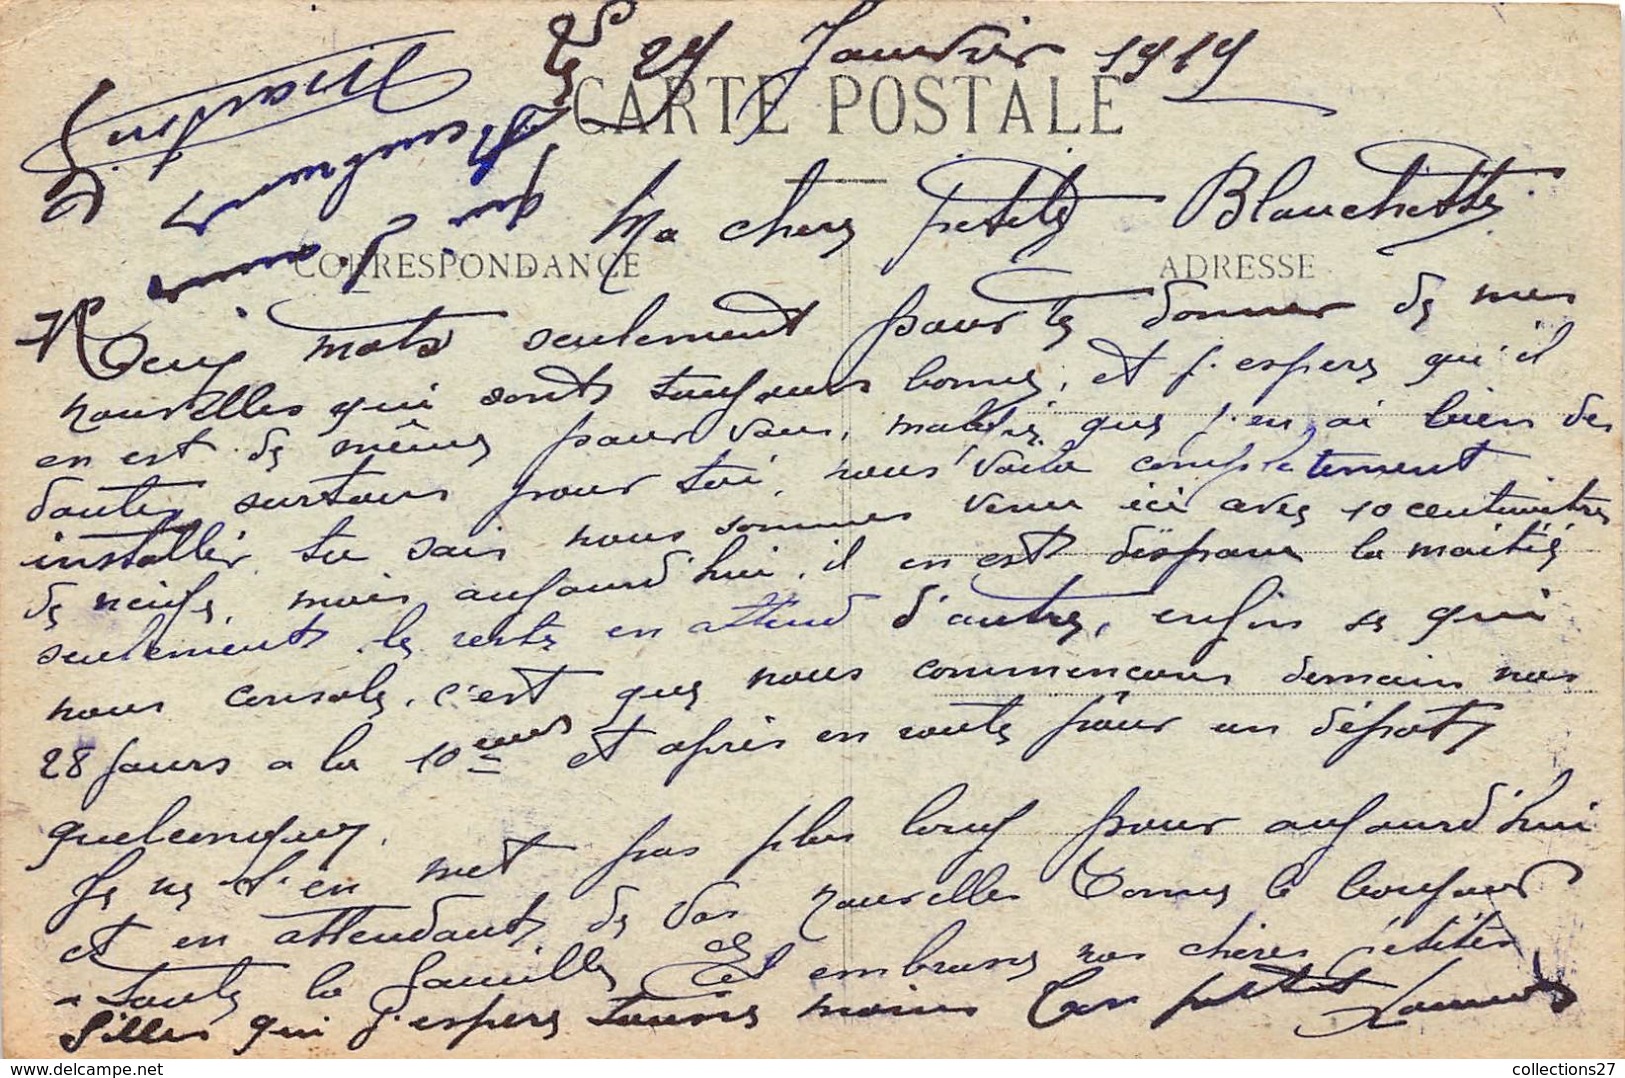 Le 29 Janvier 1919
CARTE POSTALE
Ma chere petite Blanchette
CORRESPONDANCE
ADRESSE
Deux mots seulement pour te donner de mes
nouvelles qui sont toujours bonne, et j'espere qu'il
en est de même pour vous, malgré que j'en ai bien des
doutes surtous pour toi, nous voila completement
installer tu sais nous sommes venu ici avec 10 centimètres
de neige, mais aujourd'hui, il en est disparu la moitié
seulement le reste en attend d'autre, enfin se qui
nous console, c'est que nous commencons demain nos
28 jours a la 10 et après en route pour un dépot
quelconque.
Je ne t'en met pas plus long pour aujourd'hui
et en attendant de vos nouvelles Donne le bonjour
a toute la famille et embrasse nos chères petites
filles qui j'espere tousse moins Ton petit
qui